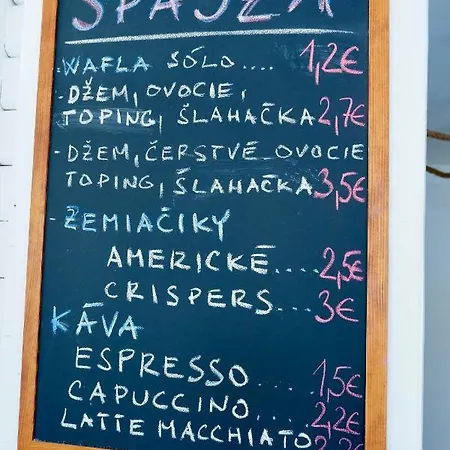 ŠPAJZA
- WAFLA SÓLO.... 1,2€
- DŽEM, OVOCIE,
TOPING, ŠLAHAČKA 2,7€
- DŽEM, ČERSTVÉ OVOCIE
TOPING, ŠLAHAČKA 3,5€
- ZEMIAČIKY
AMERICKÉ.... 2,5€
CRISPERS... 3€
KÁVA
ESPRESSO.... 1,5€
CAPUCCINO.... 2,2€
LATTE MACCHIATO